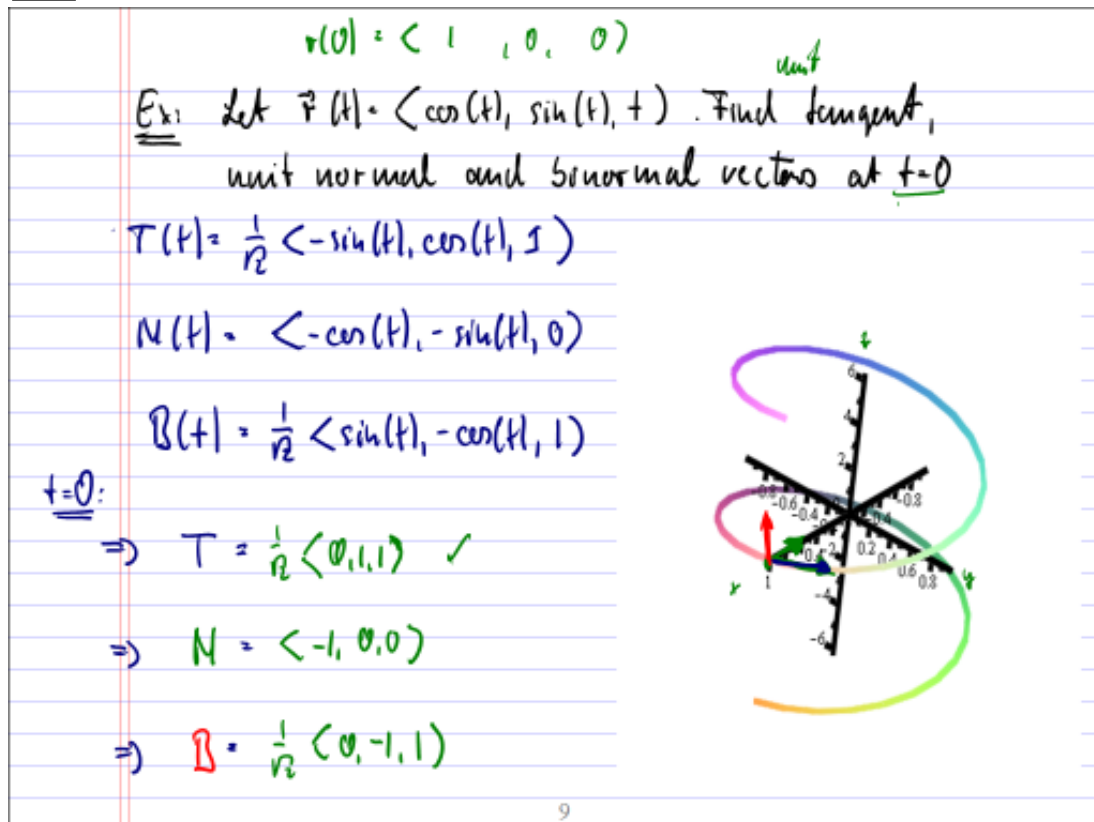 r(0) = < 1 , 0, 0)
unit
Ex: Let r⃗(t) = <cos(t), sin(t), t) . Find tangent,
unit normal and binormal vectors at t=0
T(t) = 1/√2 <-sin(t), cos(t), 1)
N(t) = <-cos(t), -sin(t), 0)
B(t) = 1/√2 <sin(t), -cos(t), 1)
t=0:
=) T = 1/√2 <0,1,1) ✓
=) N = <-1, 0,0)
=) B = 1/√2 <0,-1,1)
z
6
4
2
-0.8
-0.6
-0.4
-0.8
-0.4
0.4
0.2
0.4
0.6
0.8
x
1
y
-2
-4
-6
9